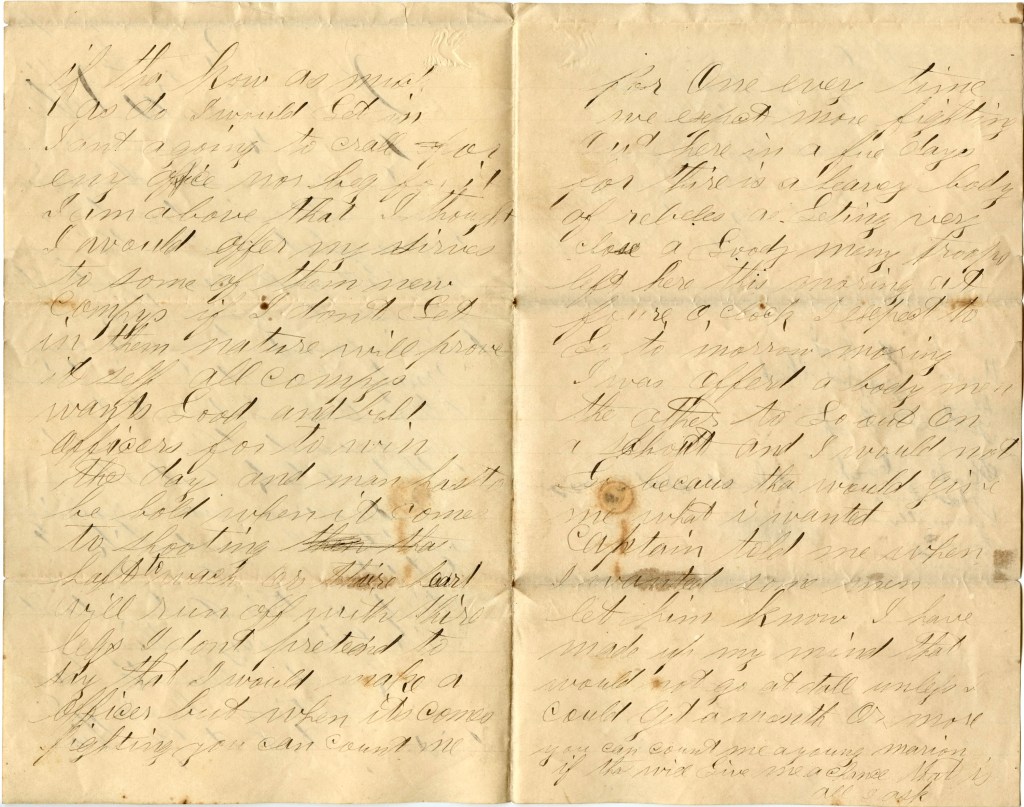 if tha know as much
as do I would Get in
I ant a going to crall for
eny ofice nor beg for it
I am above that I thought
I would offer my sirves
to some of them new
compys if I dont Get
in them nature will prove
it self all compys
wants Good and bold
officers for to win
the day and man has to
be bold when it come
to shooting
hart
will run off with thire
legs I dont pretend to
say that I would make a
officer but when its comes
fighting you can count me
for One ever time
we expect more fighting
out here in a few days
for thire is a heavey body
of rebeles a Geting very
close a Goody meny troops
left here this moring at
foure o clock I expect to
Go to morrow moring
I was offerd a body men
the others to Go out on
a shout and I would not
Go becaus tha would give
me what i wanted
Captain told me when
I wanted some men
let him know I have
made up my mind that
would not go at all unless i
could get a month Or more
you can count me a young marion
if tha will Give me a chance that is
all I ask